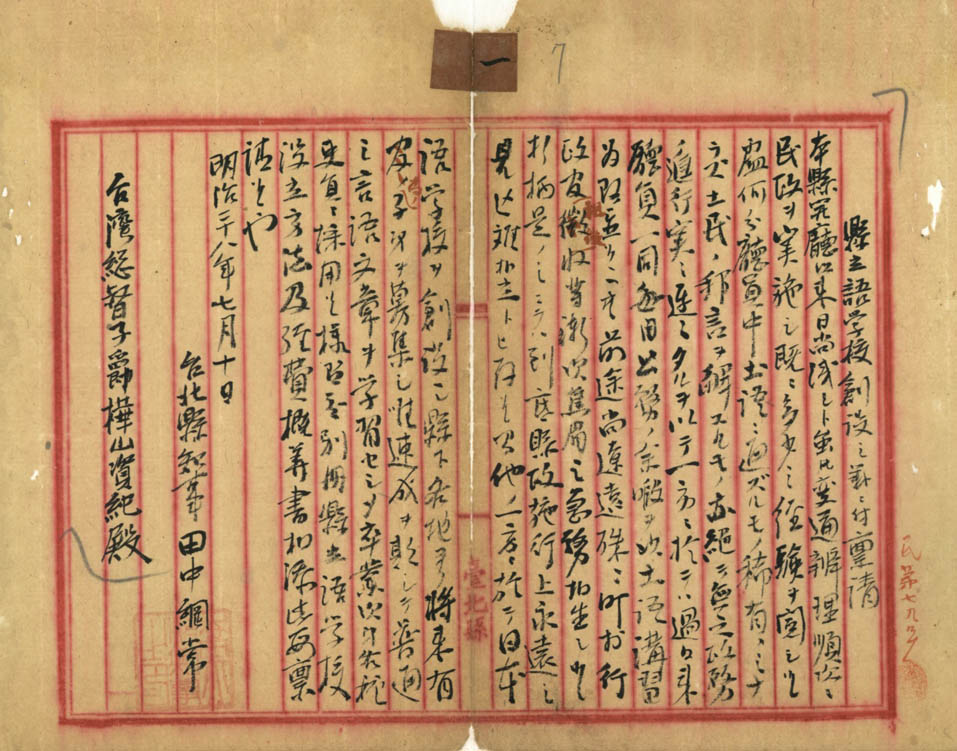 一
7
縣立語学校創設之義ニ付稟請
本縣開廳以来日尚浅シト雖モ交通辨理順次ニ
民政ヲ実施シ既ニ多少ノ経験ヲ
廳員中土語ニ通ズルモノ稀有ニシテ
土民ノ邦言ヲ解スルモノ亦絶テ無之政務
進行実ニ遅々タルヲ以テ一方ニ於テハ過日来
廳員一同毎日公務ノ余暇ヲ以土語講習
為致居候ヘ共前途尚遼遠殊ニ町村行
政
租税
徴收等漸次焦眉之急務相生シ
柄是ノミニテハ到底縣政施行上永遠之
見込難相立ト存候間他ノ一方ニ於テ日本
語学校ヲ創設シ縣下各地ヨリ將来有
為
之子弟ヲ募集シ唯速成ヲ期シテ普通
之言語文章ヲ学習セシメ卒業次第
吏員ニ採用候様致度別冊縣立語学校
設立方法及経費概算書相添此段稟
請候也
明治二十八年七月十日
台北縣知事田中綱常
台湾総督子爵樺山資紀殿
臺北縣